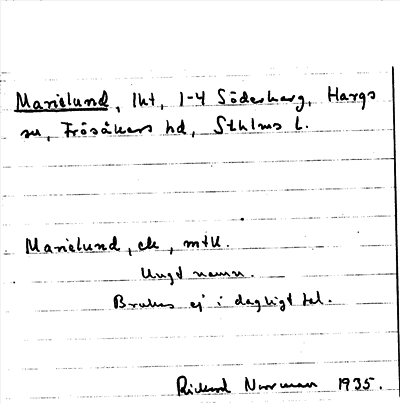 Marielund, lht, 1-4 Söderharg, Hargs
sn, Frösåkers hd, Sthlms l.
Marielund, ek, mtl.
Ungt namn.
Brukas ej i dagligt tal.
Rickard Norrman 1935.